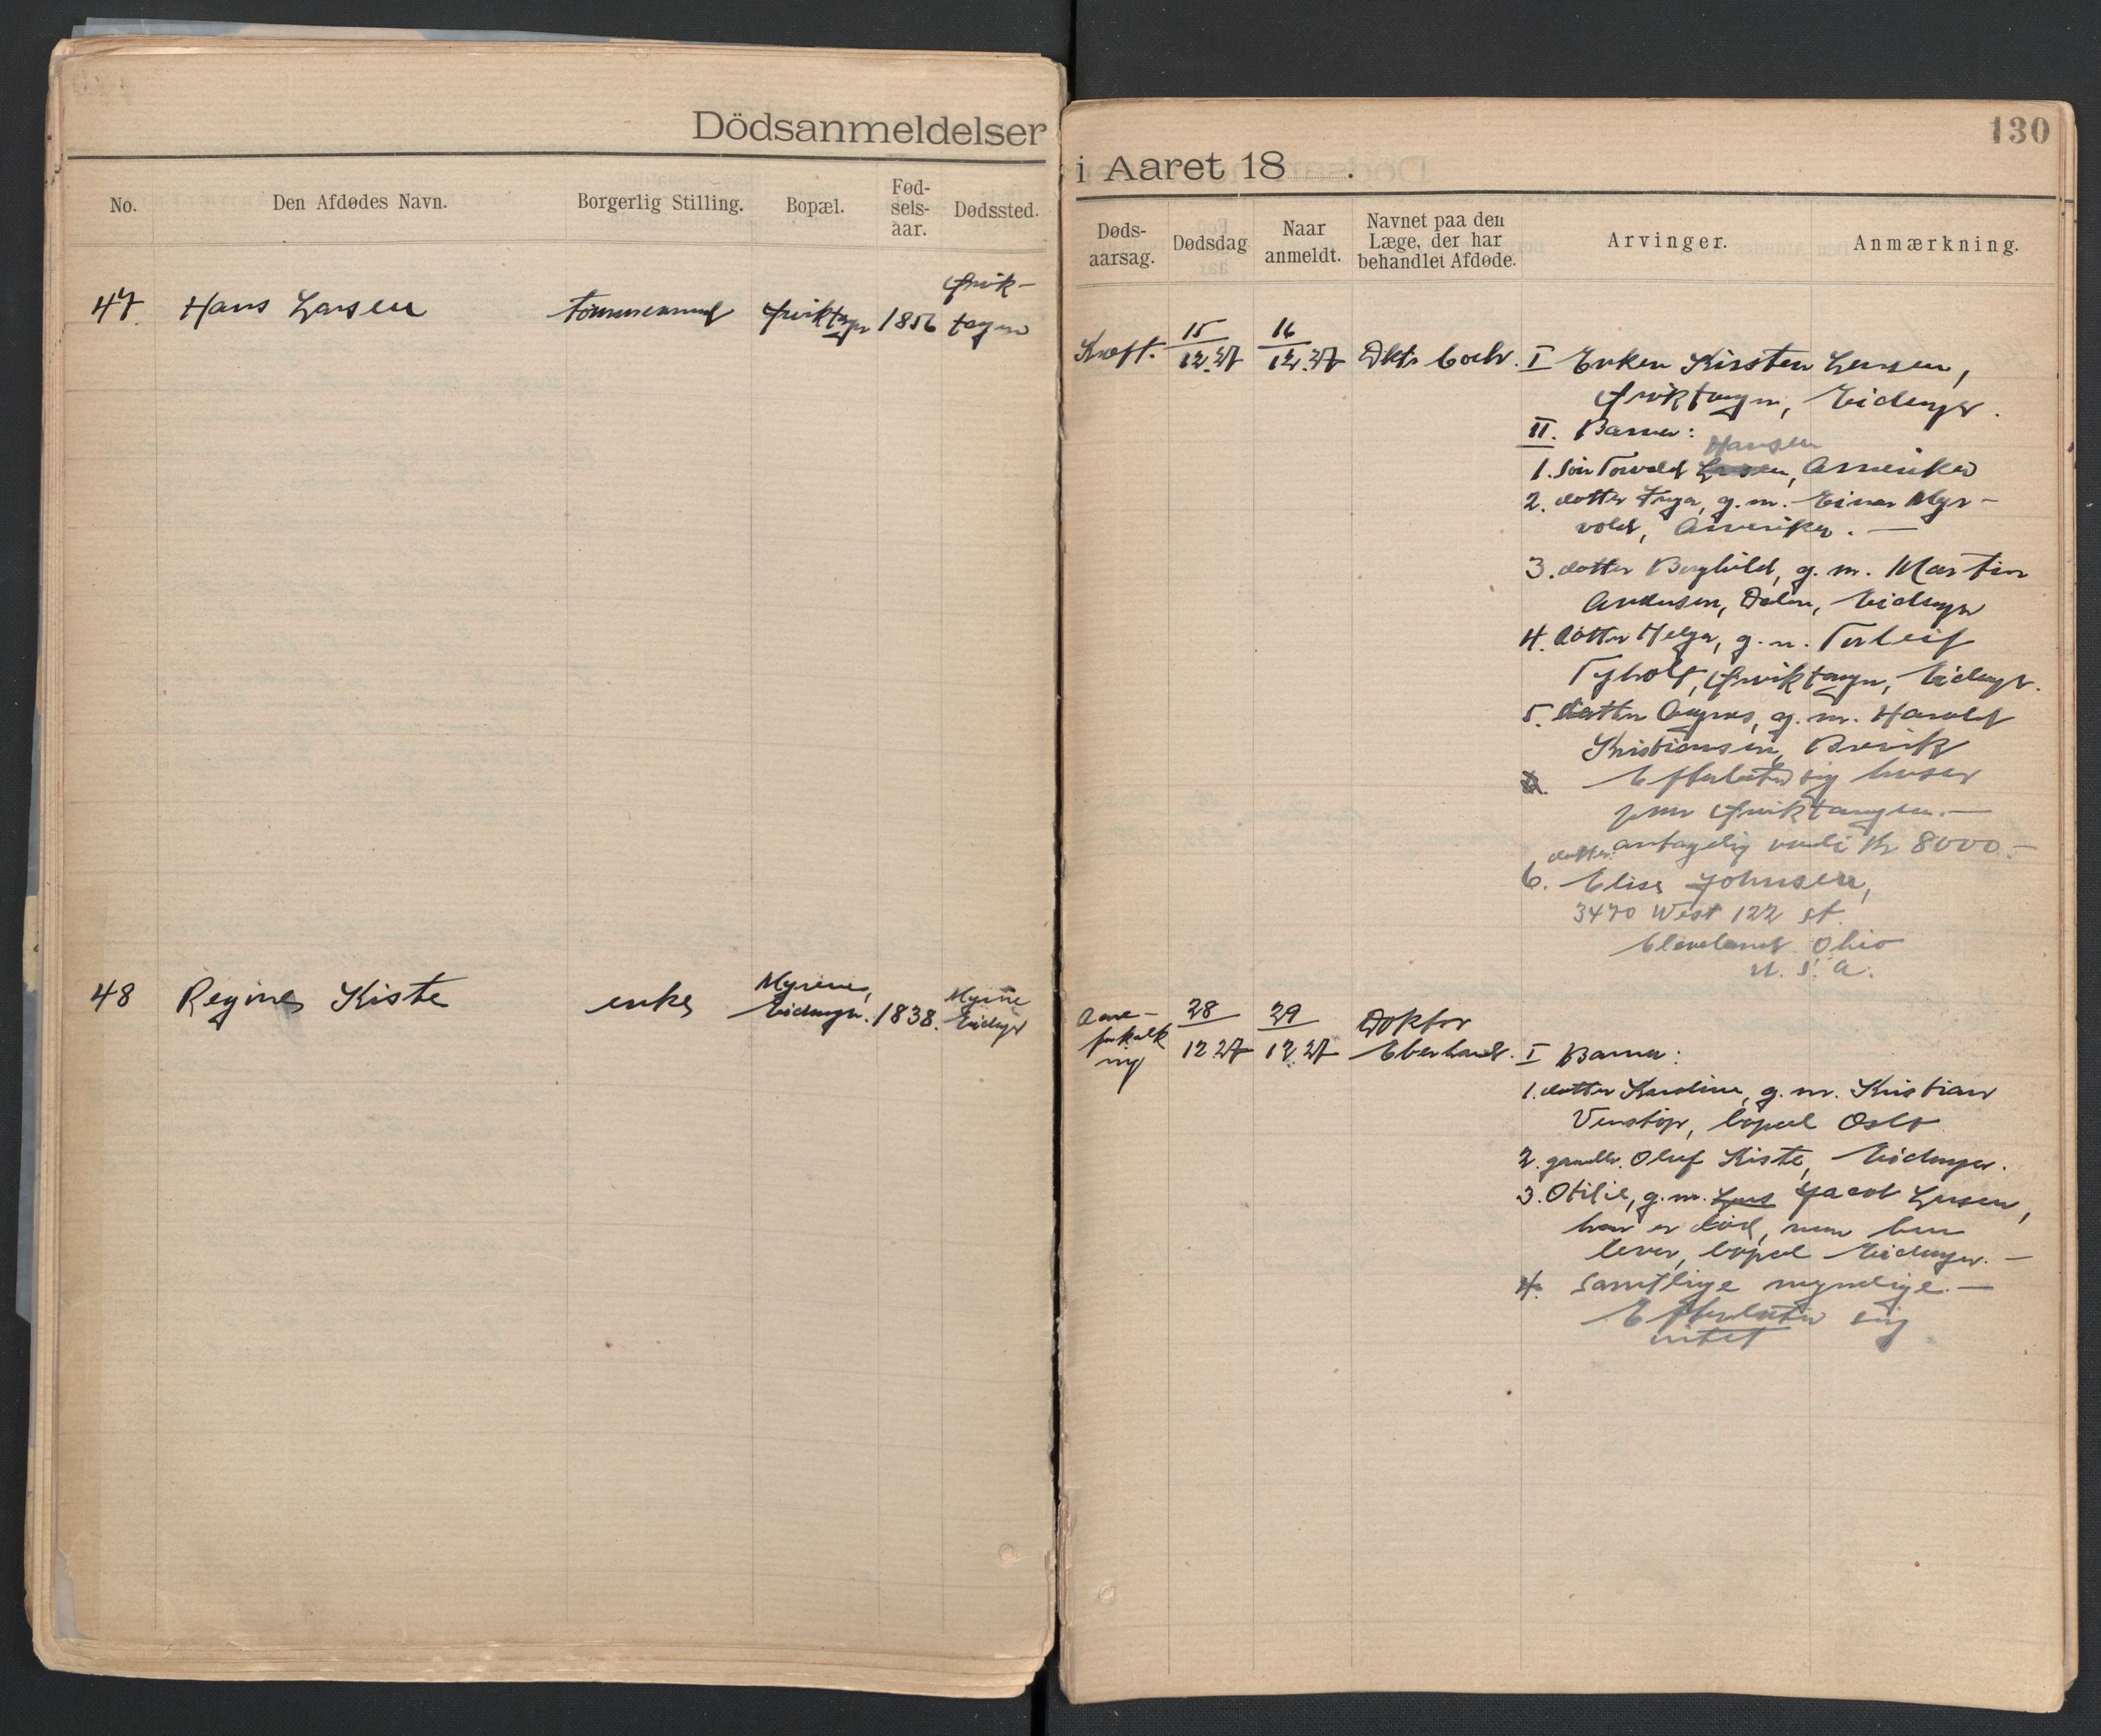 Dödsanmeldelser
No.
Den Afdødes Navn.
Borgerlig Stilling.
Bopæl.
Fød-
sels-
aar.
Dødssted.
47.
Hans Larsen
tømmermand
1856
48
Regine Kiste
enke
Myrene,
Eidanger.
1838.
Myrene
Eidanger
130
i Aaret 18 .
Døds-
aarsag.
Dødsdag
Naar
anmeldt.
Navnet paa den
Læge, der har
behandlet Afdøde.
Arvinger.
Anmærkning.
Kræft.
15
12.27
16
12.27
Dktr
I Enken Kirsten Larsen,
Eidanger.
II. Barner:
Hansen
1. søn Torvald Larsen, Amerika
2. dotter g.m. Einar Myr-
vold, Amerika. —
3. dotter Borghild, g.m. Martin
Andersen, Dalen, Eidanger
4. dotter Helga, g.m. Torleif
Tyholt, Eidanger.
5. datter Agnes, g.m. Harald
Kristiansen, Brevik
Efterlater sig huser
antagelig verdi Kr 8000.-
datter
6. Elise Johnsen,
3470 West 122 st.
Cleveland Ohio
U. S. A.
Aare-
forkalk
ning
28
12 27
29
12.27
Doktor
Eberhard.
I Barna:
1. datter Karoline, g.m. Kristian
Venstøp, bopæl Oslo
2. Oluf Kiste, Eidanger.
3. Otilie, g.m. Lars Jacob Larsen,
han er død, men hun
lever, bopæl Eidanger. —
4. Samtlige myndige. —
Efterlater sig
intet